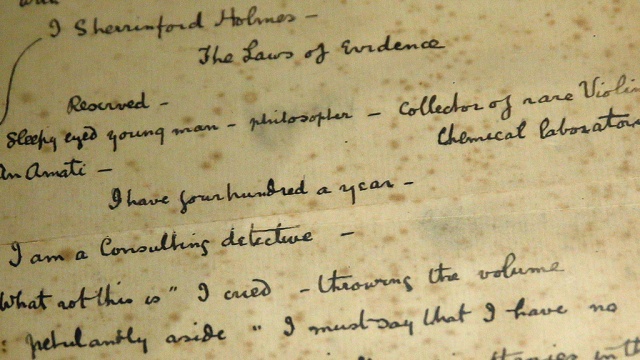 I Sherrinford Holmes –
The Laws of Evidence
Reserved –
Sleepy eyed young man – philosopher – Collector of rare Violins
An Amati –
Chemical laboratory
I have four hundred a year –
I am a Consulting detective –
What rot this is" I cried – throwing the volume
: petulantly aside " I must say that I have no
in th